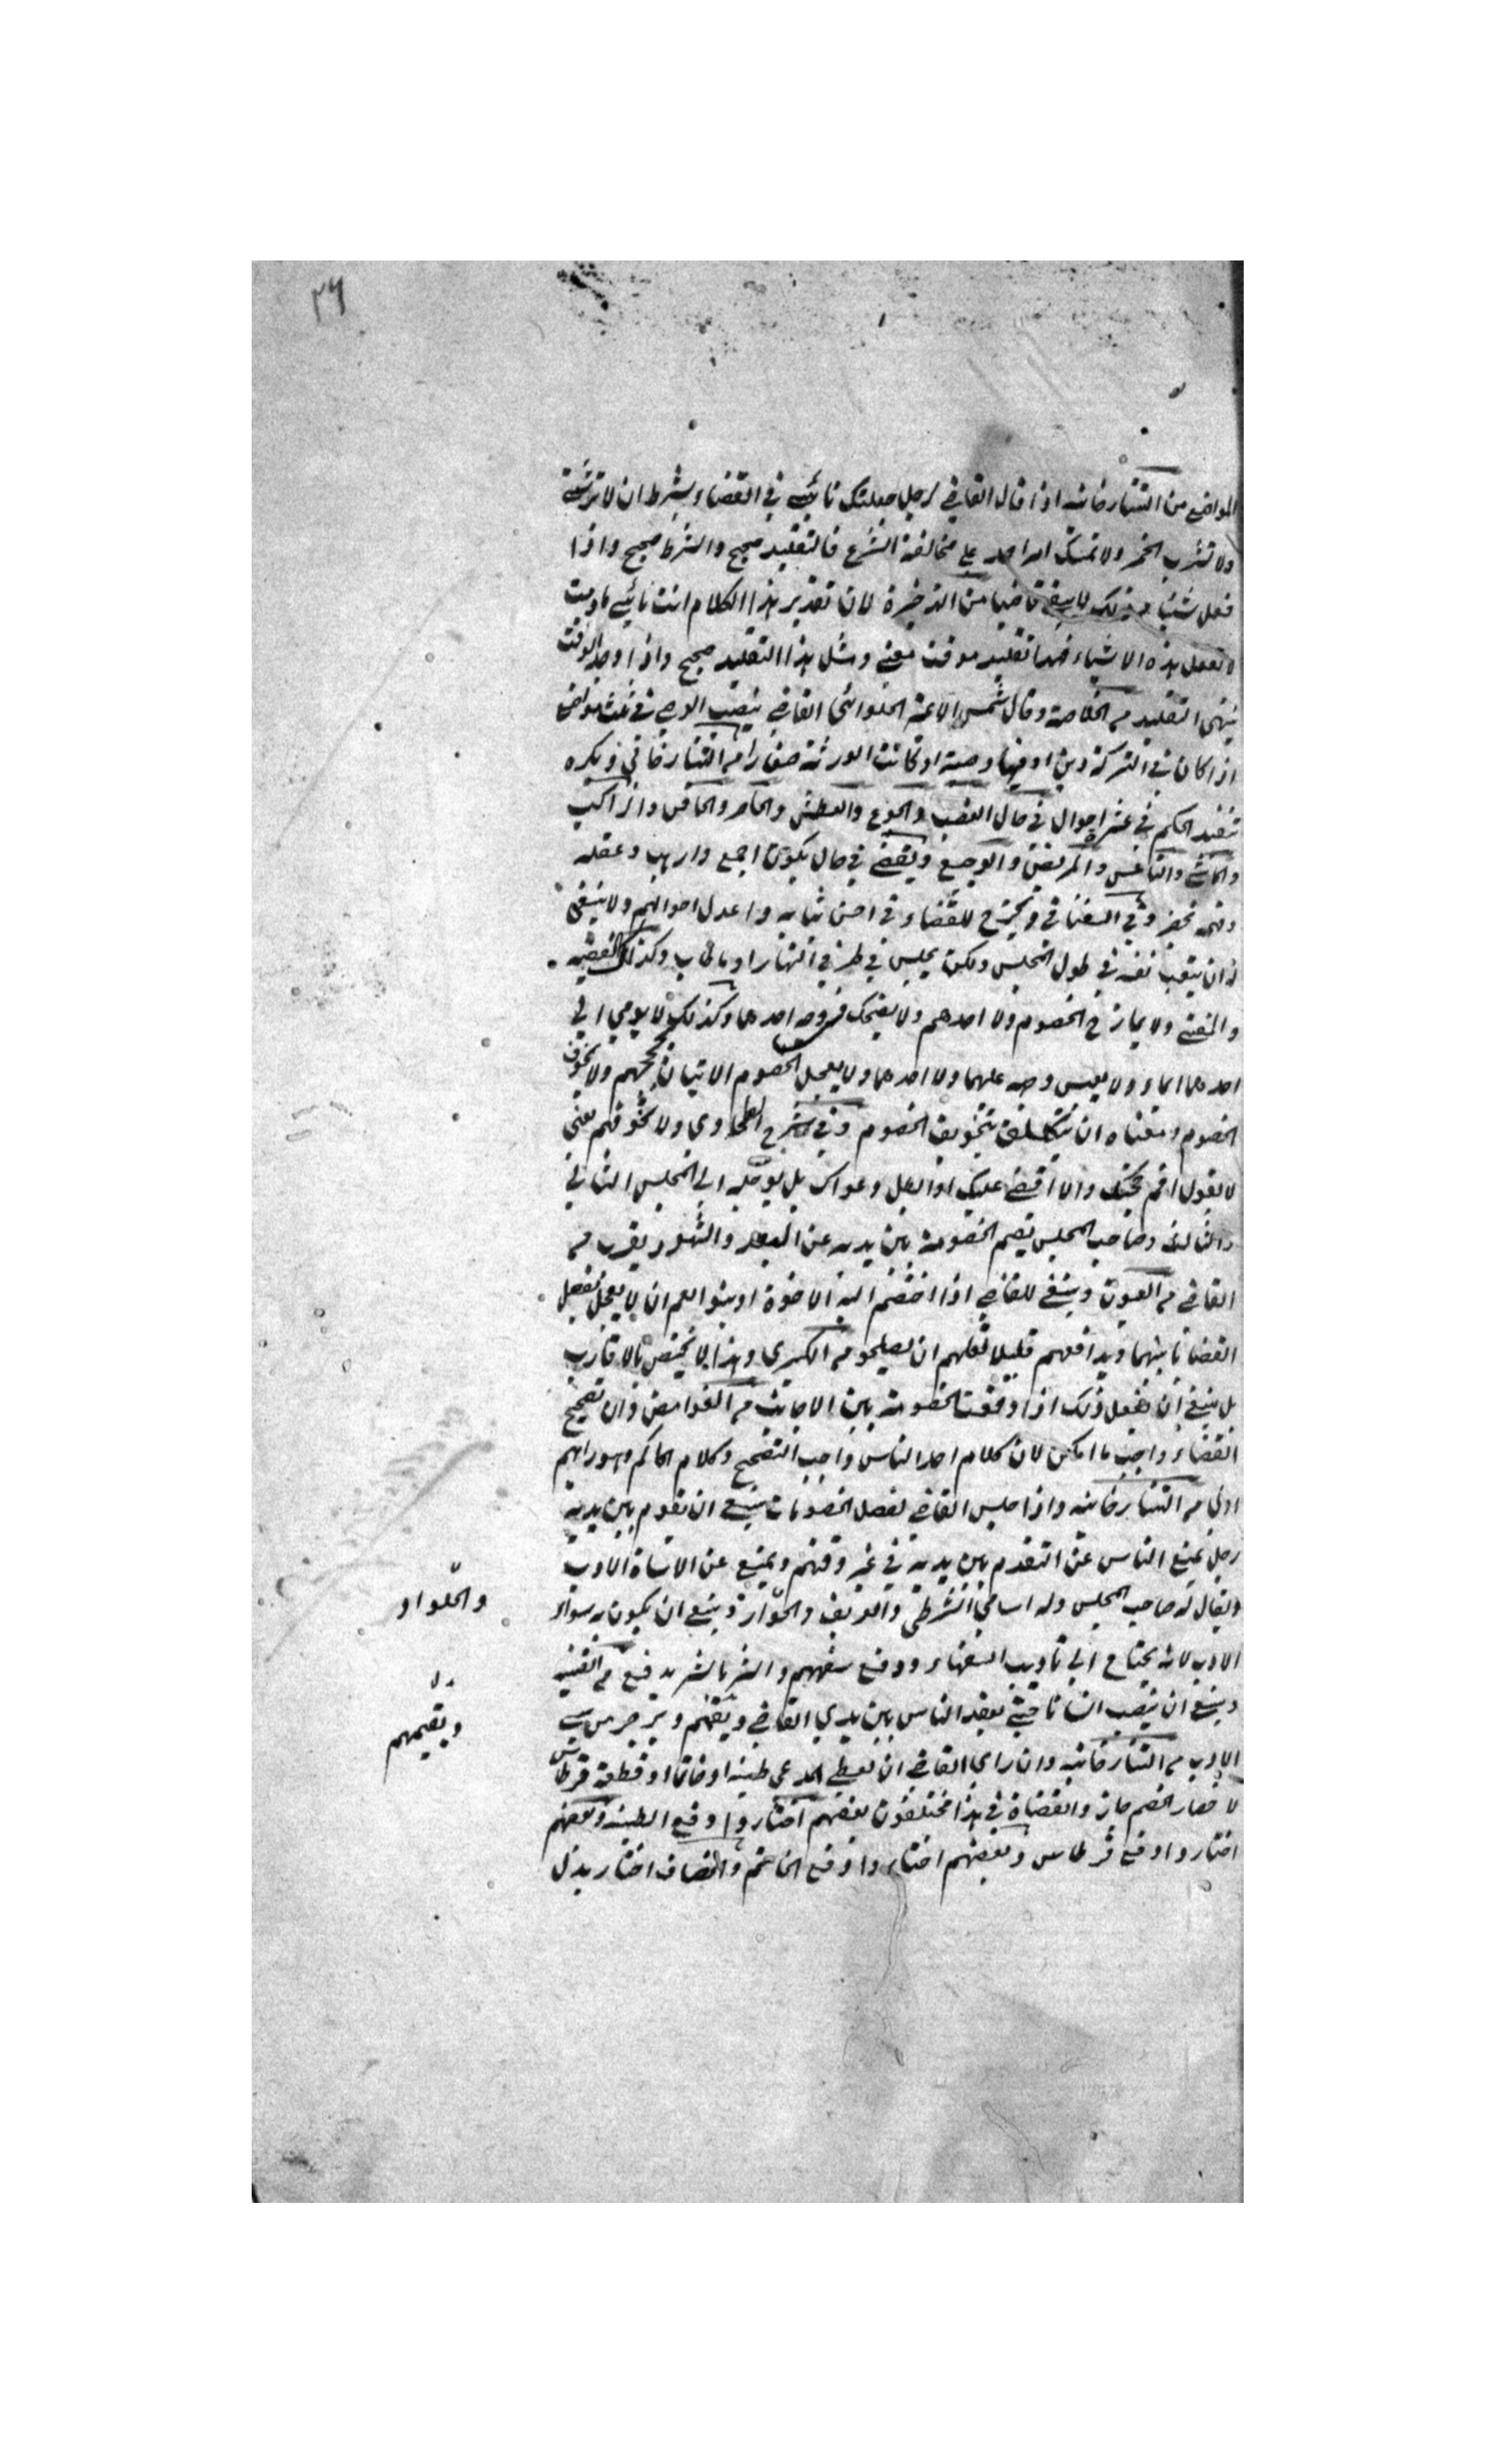 ٢٦
المواضع من التتارخانيه اذا قال القاضي لرجل جعلتك نائبي في القضاء بشرط ان لا ترتشي
ولا تشرب الخمر ولا تمتثل امر احد علي مخالفة الشرع فالتقليد صحيح والشرط صحيح واذا
فعل شيئا من ذلك لا يبقي قاضيا من الذخيرة لان تقدير هذا الكلام انت نائبي مادمت
لا تفعل هذه الاشياء فهذا تقليد موقت معني ومثل هذا التقليد صحيح واذا وجد الوقت
ينتهي التقليد من الخلاصة وقال شمس الائمة الحلواني القاضي ينصب الوصي في ثلث مواضع
اذا كان في التركة دين او فيها وصية او كانت الورثة صغارا من التتارخاني ويكره
تنفيذ الحكم في عشرة احوال في حال الغضب والجوع والعطش والحاقن والراكب
والماشي والناعس والمريض والوجع ويقضي في حال يكون اجمع وعقله
وفهمه وفي السغناقي ويخرج للقضاء في احسن ثيابه واعدل احوالهم ولا ينبغي
له ان يتعب نفسه في طول المجلس ولكن يجلس في طرفي النهار او ما طاب وكذلك الفقيه
والمفتي ولا يمازح الخصوم ولا احدهم ولا يضحك في وجه احدهما وكذلك لا يومي الي
احدهما ايماء ولا يعبس وجهه عليهما ولا احدهما ولا يعجل الخصوم الاتيان بحججهم ولا يخوف
الخصوم ومعناه ان بتخويف الخصوم وفي شرح الطحاوي ولا يخوفهم يعني
لا يقول اقم حجتك والا اقضي عليك او ابطل دعواك بل يؤجله الي المجلس الثاني
والثالث وصاحب المجلس يقيم الخصومة بين يديه عن البعد والشهود يقرب من
القاضي من العيون وينبغي للقاضي اذا اختصم اليه الاخوة او بنوا العم ان لا يعجل بفصل
القضاء بينهما ويدافعهم قليلا لعلهم ان يصلحوا من الكبري وهذا لا يختص بالاقارب
بل ينبغي ان يفعل ذلك اذا وقعت الخصومة بين الاجانب من الغوامض وان تصحيح
القضاء واجب ما امكن لان كلام احد الناس واجب التصحيح وكلام الحاكم وهو رأيهم
اولي من التتارخانيه واذا جلس القاضي لفصل الخصومات ينبغي ان يقوم بين يديه
رجل يمنع الناس عن التقدم بين يديه في غير وقتهم ويمنع عن الاساءة الادب
ويقال له صاحب المجلس وله اسامي الشرطي والعريف والجلواز وينبغي ان يكون به سواد
والجلواد
الادب لانه يحتاج الي تاديب السفهاء ودفع سفههم والشر بالشر يدفع من القنية
وينبغي ان ينصب انسانا حتي يقعد الناس بين يدي القاضي ويقيمهم ويزجر من يسي
ويقيمهم
الادب من التتارخانيه وان راي القاضي ان يعطي المدعي طينه او خاتما او قطعة قرطاس
لاحضار الخصم جاز والقضاة في هذا مختلفون بعضهم اختاروا دفع الطينة وبعضهم
اختاروا دفع قرطاس وبعضهم اختاروا دفع الخاتم والخصاف اختار بدل